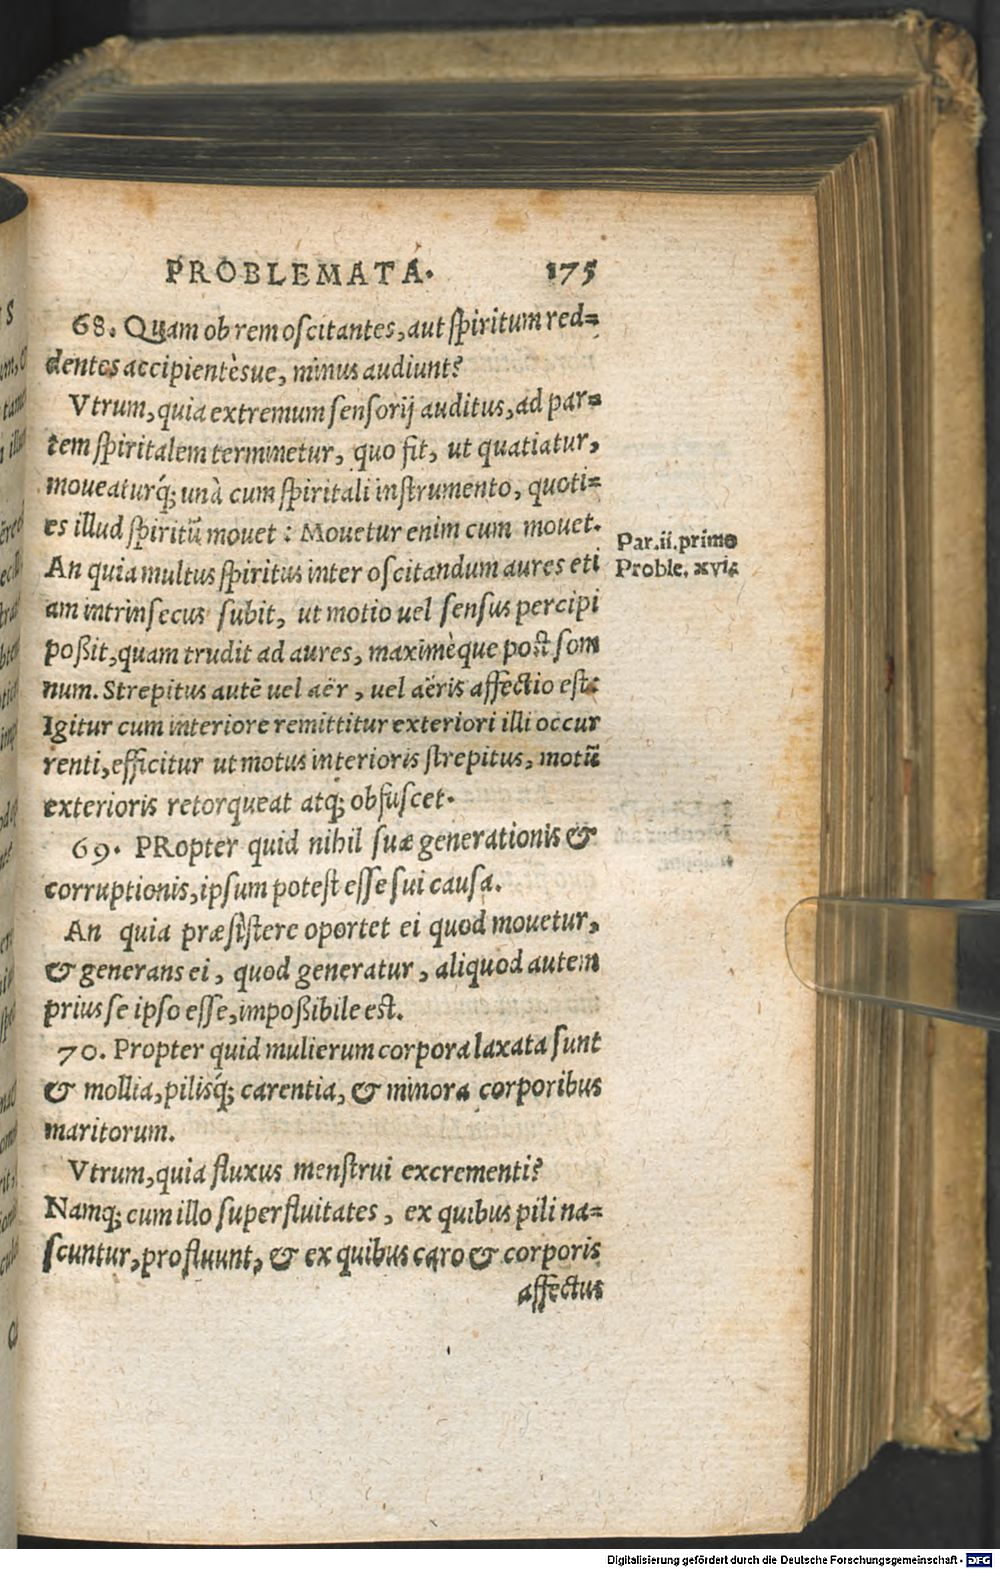 PROBLEMATA. 175
68. Quam ob rem oscitantes, aut spiritum red=
dentes accipientèsue, minus audiunt?
Vtrum, quia extremum sensorij auditus, ad par=
tem spiritalem terminetur, quo fit, ut quatiatur,
moueaturq́; unà cum spiritali instrumento, quoti=
es illud spiritū mouet: Mouetur enim cum mouet.
An quia multus spiritus inter oscitandum aures eti
am intrinsecus subit, ut motio uel sensus percipi
poßit, quam trudit ad aures, maximèque post som
num. Strepitus autē uel aër, uel aëris affectio est:
Igitur cum interiore remittitur exteriori illi occur
renti, efficitur ut motus interioris strepitus, motū
exterioris retorqueat atq; obfuscet.
Par. ii. primo
Proble. xvi.
69. PRopter quid nihil suæ generationis &
corruptionis, ipsum potest esse sui causa.
An quia præsistere oportet ei quod mouetur,
& generans ei, quod generatur, aliquod autem
prius se ipso esse, impoßibile est.
70. Propter quid mulierum corpora laxata sunt
& mollia, pilisq́; carentia, & minora corporibus
maritorum.
Vtrum, quia fluxus menstrui excrementi?
Namq; cum illo superfluitates, ex quibus pili na=
scuntur, profluunt, & ex quibus caro & corporis
affectus
Digitalisierung gefördert durch die Deutsche Forschungsgemeinschaft - DFG